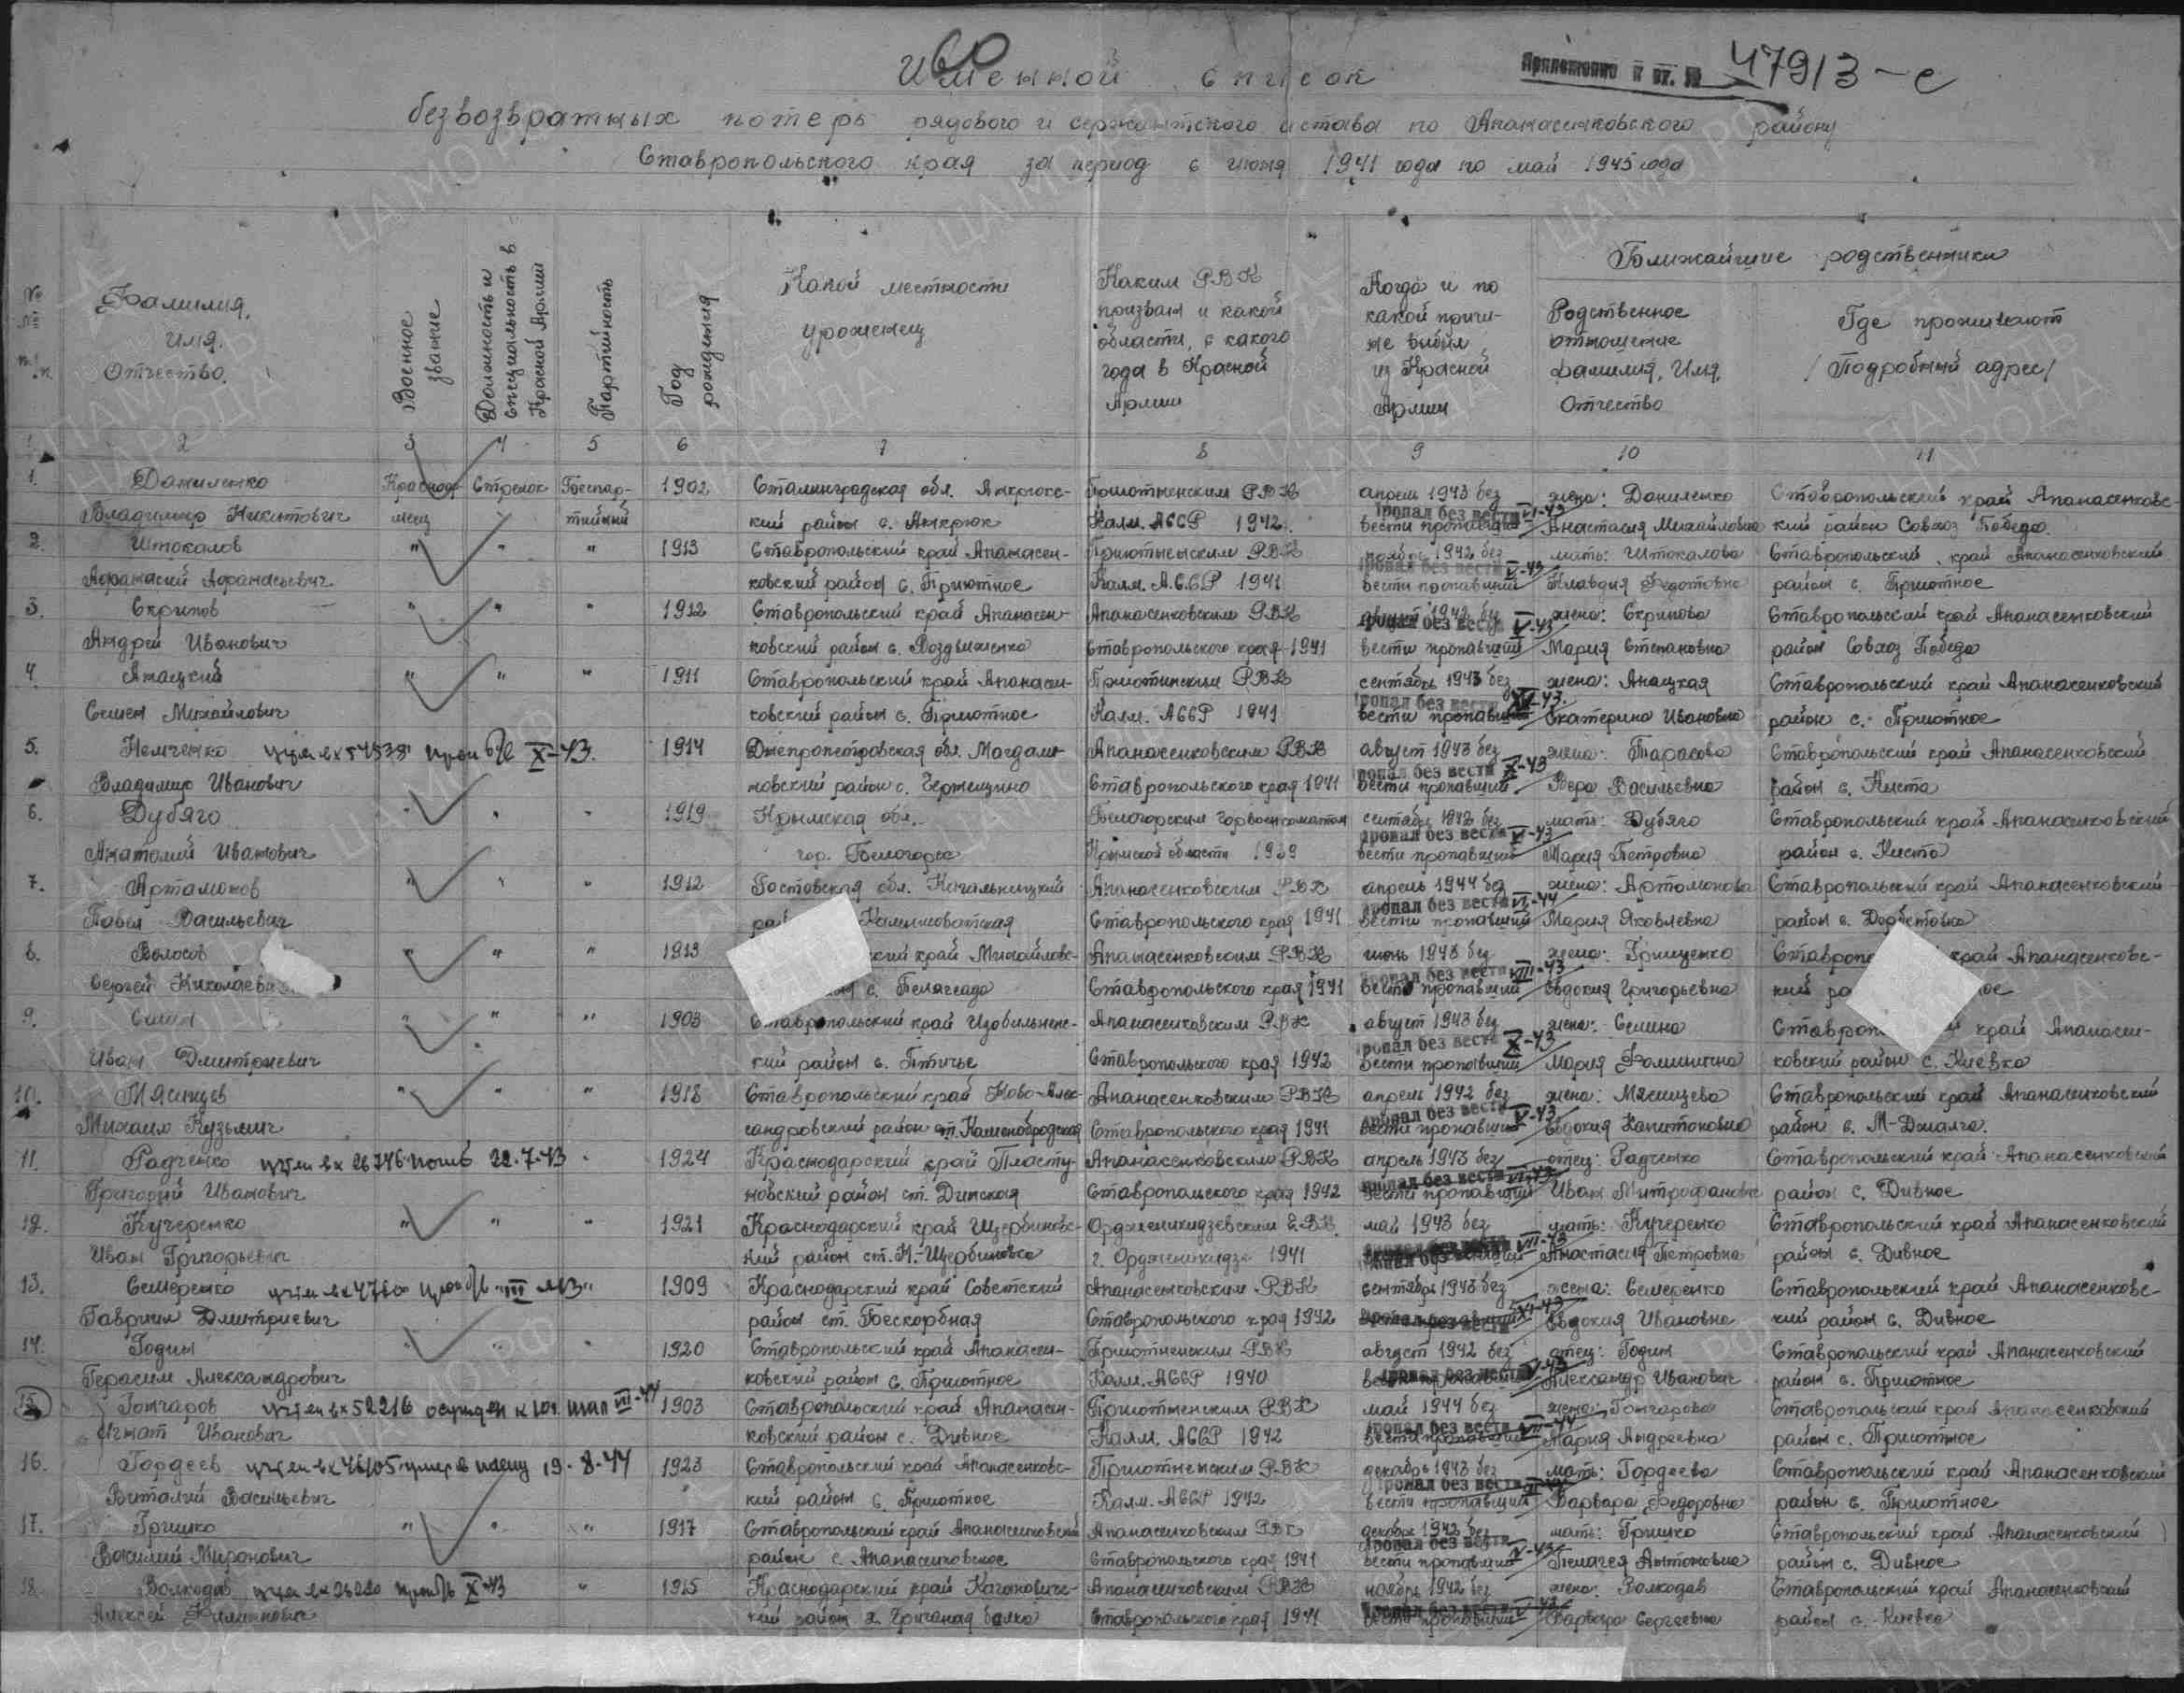 60
Именной список
Приложение к вх. № 47913-с
безвозвратных потерь рядового и сержантского состава по Апанасенковского району
Ставропольского края за период с июня 1941 года по май 1945 года
№№ п.п.
Фамилия, имя, Отчество.
Военное звание
Должность и специальность в Красной Армии
Партийность
Год рождения
Какой местности уроженец
Каким РВК призван и какой области, с какого года в Красной Армии
Когда и по какой причине выбыл из Красной Армии
Ближайшие родственники
Родственное отношение Фамилия, Имя, Отчество
Где проживают /Подробный адрес/
1 2 3 4 5 6 7 8 9 10 11
1. Даниленко Красноар- Стрелок Беспар- 1902 Сталинградская обл. апрель 1943 без жена: Даниленко Ставропольский край Апанасенковс-
Владимир Никитович меец тийный кий район с. Калм. АССР 1942 Пропал без вести VI-43 вести пропавший Анастасия Михайловна кий район Совхоз Победа.
2. Штокалов " " " 1913 Ставропольский край Апанасен- Приютненским РВК ноябрь 1942 без мать: Штокалова Ставропольский край Апанасенковский
Афанасий Афанасьевич ковский район с. Приютное Калм. А.С.С.Р 1941 Пропал без вести V-43 вести пропавший Клавдия Федотовна район с. Приютное
3. Скрипов " " " 1912 Ставропольский край Апанасен- Апанасенковским РВК август 1942 без жена: Скрипова Ставропольский край Апанасенковский
Андрей Иванович ковский район с. Воздвиженка Ставропольского края 1941 пропал без вести V-43 вести пропавший Мария Степановна район Совхоз Победа
4 " " " 1911 Ставропольский край Апанасен- Приютинским РВК сентябрь 1943 без жена: Ставропольский край Апанасенковский
Семен Михайлович ковский район с. Приютное Калм. АССР 1941 Пропал без вести вести пропавший Екатерина Ивановна район с. Приютное
5. Немченко X-43. 1914 Днепропетровская обл. Магдали- Апанасенковским РВК август 1943 без жена: Тарасова Ставропольский край Апанасенковский
Владимир Иванович новский район с. Ставропольского края 1941 пропал без вести X-43 вести пропавший Вера Васильевна район с. Киста
6. Дубяго " " " 1919 Крымская обл. Белогорским горвоенкоматом сентябрь без мать: Дубяго Ставропольский край Апанасенковский
Анатолий Иванович гор. Белогорск Крымской области 1939 пропал без вести вести пропавший Мария Петровна район с. Киста
7. Артамонов " " " 1912 Ростовская обл. Кагальницкий Апанасенковским РВК апрель 1944 без жена: Артамонова Ставропольский край Апанасенковский
Павел Васильевич Ставропольского края 1941 пропал без вести VI-44 вести пропавший Мария Яковлевна район с. Дербетовка
8. Волосов " " " 1913 край Михайловс- Апанасенковским РВК июнь 1943 без жена: Грищенко край Апанасенковс-
Сергей с. Пелагеада Ставропольского края 1941 пропал без вести VIII-43 вести пропавший Евдокия Григорьевна кий
9. " " " 1903 Ставропольский край Изобильненс- Апанасенковским РВК август 1943 без жена: Семина край Апанасен-
Иван Дмитриевич кий район с. Птичье Ставропольского края 1942 пропал без вести X-43 вести пропавший Мария Фоминична ковский район с. Киевка
10. Мясищев " " " 1918 Ставропольский край Ново-Алек- Апанасенковским РВК апрель 1942 без жена: Мясищева Ставропольский край Апанасенковский
Михаил Кузьмич сандровский район ст. Каменобродская Ставропольского края 1941 пропал без вести V-43 вести пропавший Евдокия Капитоновна район с. М-Джалга.
11. Радченко 26746 погиб 22.7.43 " 1924 Краснодарский край Пласту- Апанасенковским РВК апрель 1943 без отец: Радченко Ставропольский край Апанасенковский
Григорий Иванович новский район ст. Динская Ставропольского края 1942 пропал без вести VII-43 вести пропавший Иван Митрофанович район с. Дивное
12. Кучеренко " " " 1921 Краснодарский край Щербиновс- Орджоникидзевским май 1943 без мать: Кучеренко Ставропольский край Апанасенковский
Иван Григорьевич кий район ст. Н.-Щербиновка г. Орджоникидзе 1941 VII-43 Анастасия Петровна район с. Дивное
13. Семеренко III 1909 Краснодарский край Советский Апанасенковским РВК сентябрь 1943 без жена: Семеренко Ставропольский край Апанасенковс-
Гавриил Дмитриевич район ст. Бескорбная Ставропольского края 1942 пропал без вести XI-43 Евдокия Ивановна кий район с. Дивное
14. Годин " " " 1920 Ставропольский край Апанасен- Приютненским РВК август 1942 без отец: Годин Ставропольский край Апанасенковский
Герасим Александрович ковский район с. Приютное Калм. АССР 1940 пропал без вести V-43 Александр Иванович район с. Приютное
15 Гончаров 52216 осужден VII-44 1903 Ставропольский край Апанасен- Приютненским РВК май 1944 без жена: Гончарова Ставропольский край Апанасенковский
Игнат Иванович ковский район с. Дивное Калм. АССР 1942 пропал без вести VII-44 вести пропавший Мария Андреевна район с. Приютное
16. Гордеев умер в плену 19.8.44 1923 Ставропольский край Апанасенковс- Приютненским РВК декабрь 1943 без мать: Гордеева Ставропольский край Апанасенковский
Виталий Васильевич кий район с. Приютное Калм. АССР 1942 пропал без вести вести пропавший Варвара Федоровна район с. Приютное
17. Гришко " " " 1917 Ставропольский край Апанасенковский Апанасенковским РВК декабрь 1942 без мать: Гришко Ставропольский край Апанасенковский
Василий Миронович район с. Апанасенковское Ставропольского края 1941 Пропал без вести V-43 вести пропавший Пелагея Антоновна район с. Дивное
18. Волкодав X-43 " 1915 Краснодарский край Кагановичс- Апанасенковским РВК ноябрь 1942 без жена: Волкодав Ставропольский край Апанасенковский
Алексей Филиппович кий район х. балка Ставропольского края 1941 Пропал без вести V-43 вести пропавший Варвара Сергеевна район с. Киевка